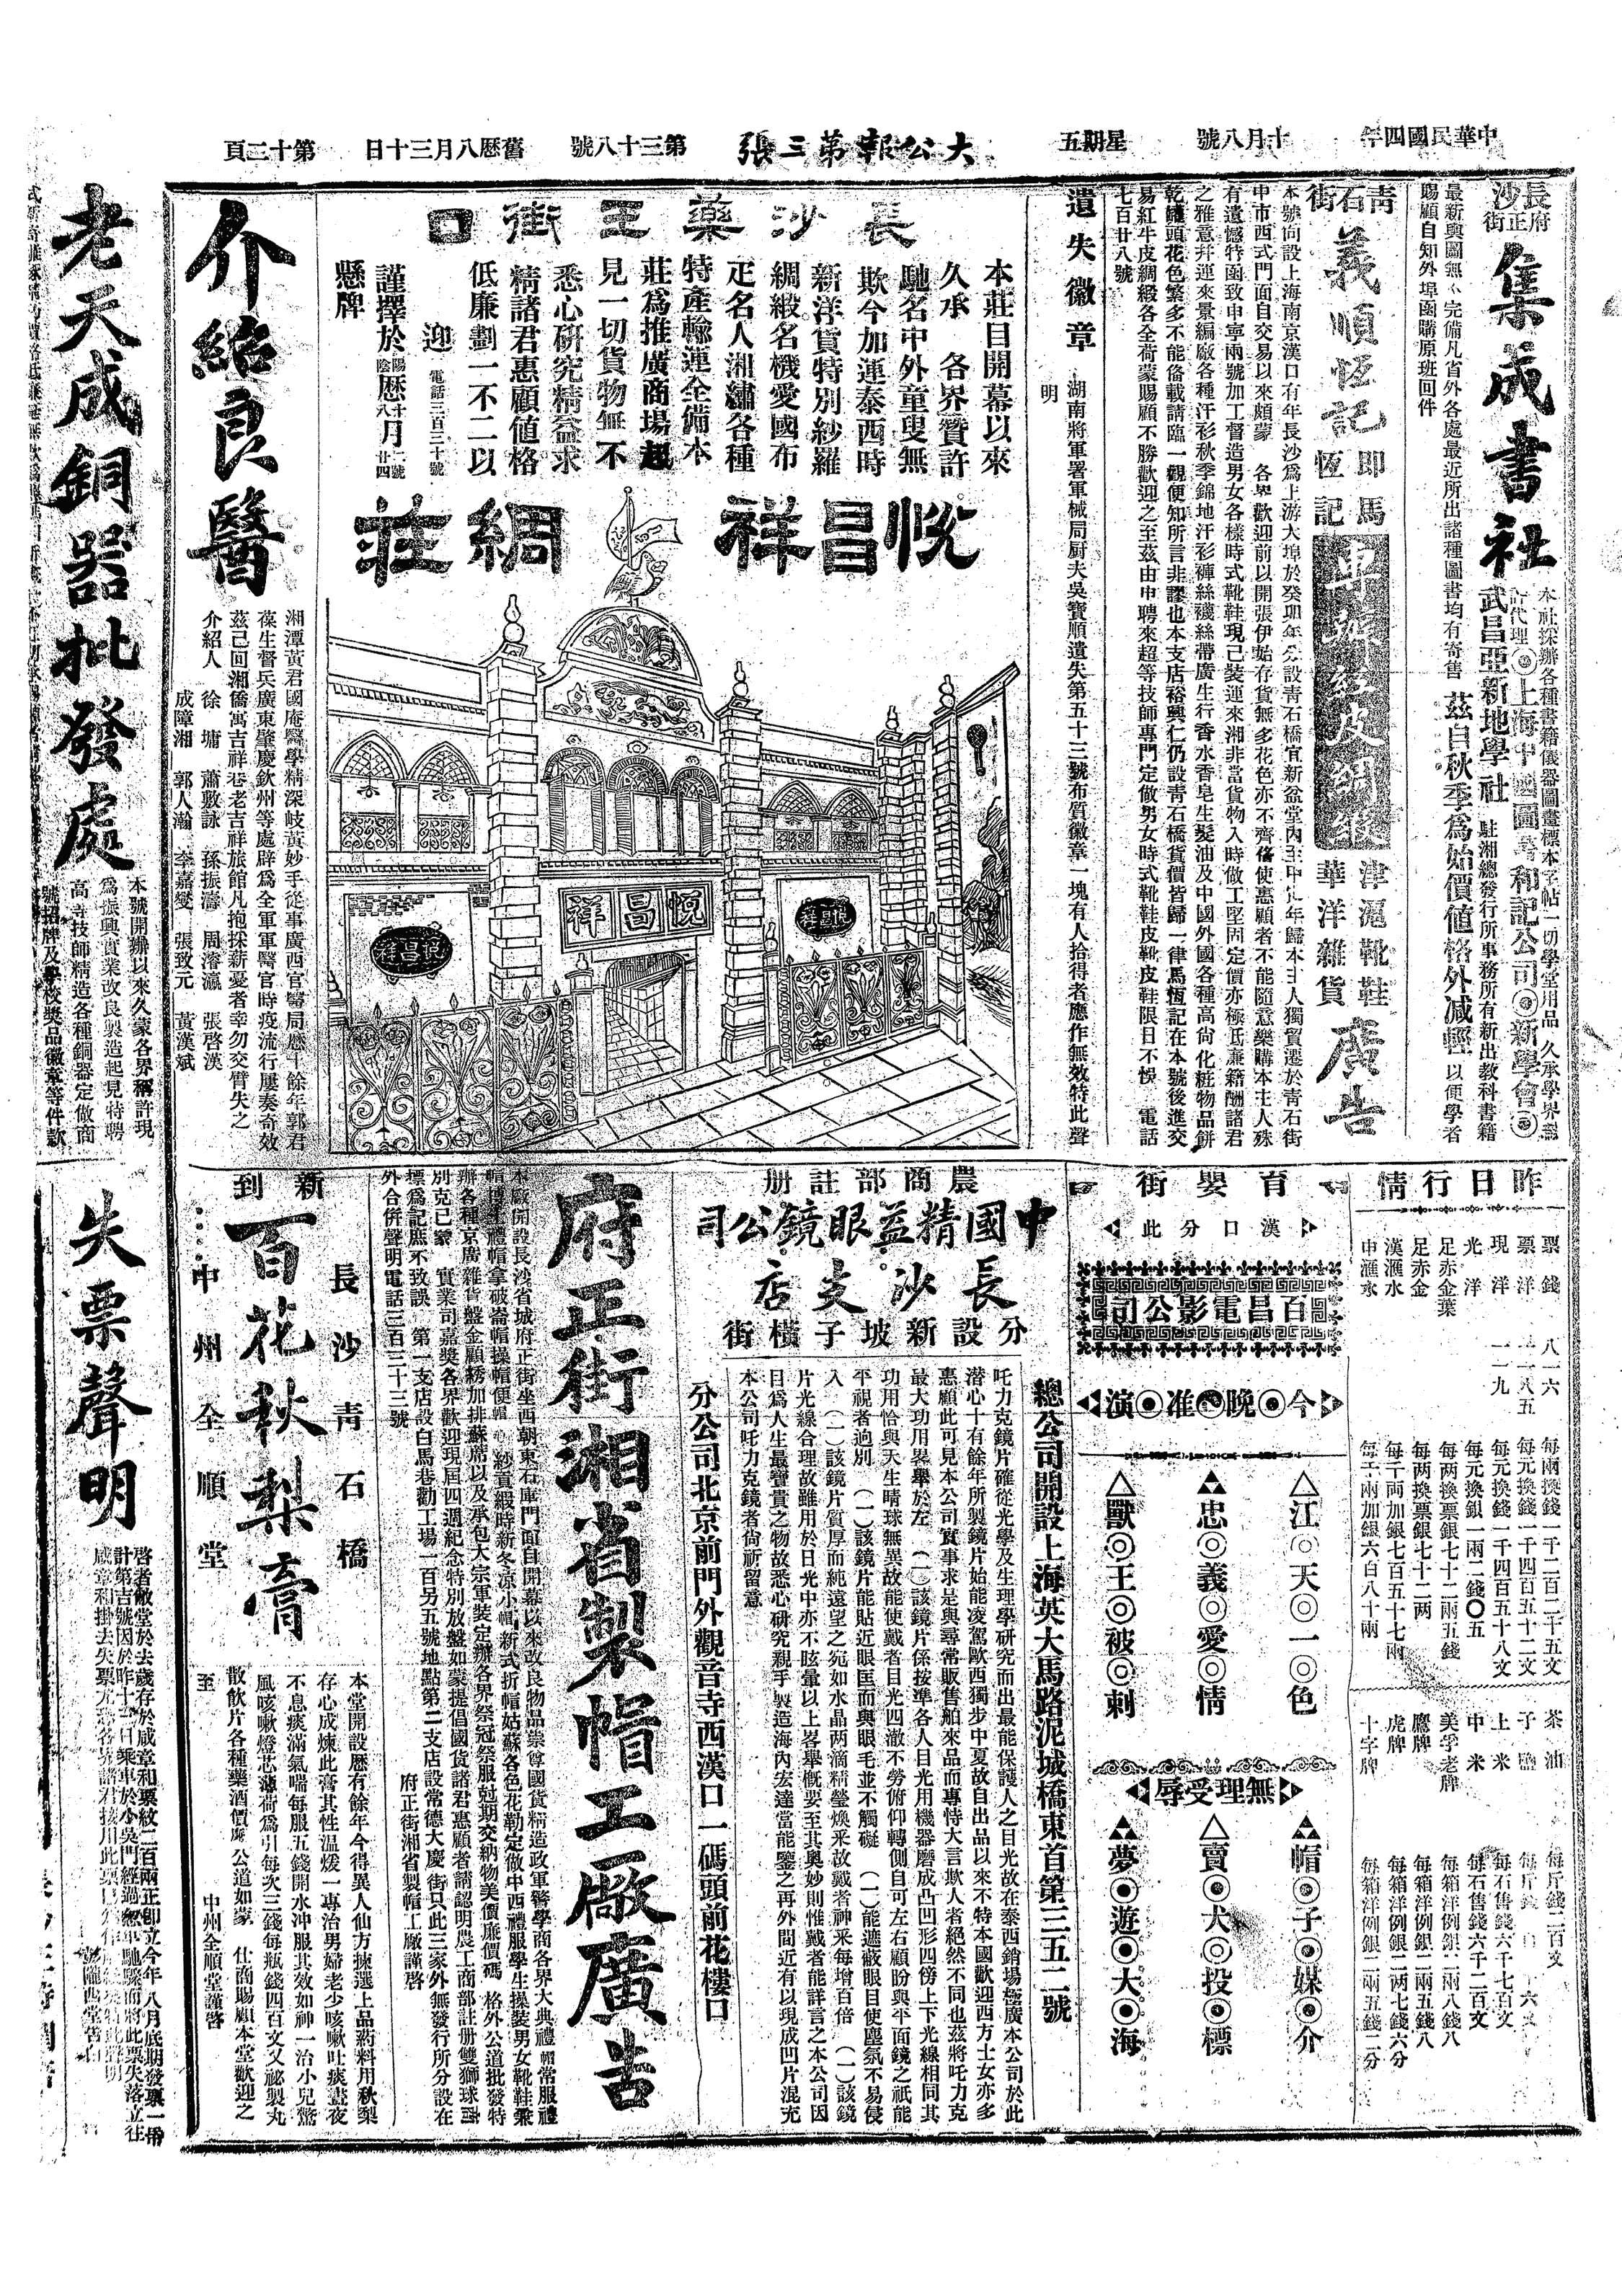 中華民國四年 十月八號 星期五 大公報第三張 第三十八號 舊歷八月三十日 第十三頁
長沙府正街
集成書社
本社採辦各種書籍儀器圖畫標本字帖一切學堂用品
久承學界
代理◎上海中
和記公司◎新學會◎
武昌亞新地學社
駐湘總發行所事務所有新出教科書籍
最新輿圖無
完備凡省外各處最近所出諸種圖書均有寄售
茲自秋季爲始價值格外减輕
以便學者
賜顧自知外埠函購原班回件
青石街
義順恆記
即馬恆記
津滬靴鞋華洋雜貨
廣告
本號向設上海南京漢口有年長沙爲上游大埠於癸卯年分設青石橋宜新盆堂內
年歸本主人獨貿遷於青石街
中市西式門面自交易以來頗蒙 各界歡迎前以開張伊始存貨無多花色亦不齊俻使惠顧者不能隨意樂購本主人殊
有遺憾特函致申寧兩號加工督造男女各樣時式靴鞋現已裝運來湘非當貨物入時做工堅固定價亦極低亷藉酬諸君
之雅意幷運來景綸廠各種汗衫秋季錦地汗衫褲絲襪絲帶廣生行香水香皂生髮油及中國外國各種高尚化粧物品餅
乾罐頭花色繁多不能俻載請臨一觀便知所言非謬也本支店裕興仁仍設青石橋貨價皆歸一律馬恆記在本號後進交
易紅牛皮綢緞各全荷蒙賜顧不勝歡迎之至茲由申聘來超等技師專門定做男女時式靴鞋皮靴皮鞋限日不悞 電話
七百廿八號
遺失徽章
湖南將軍署軍械局厨夫吳寶順遺失第五十三號布質徽章一塊有人拾得者應作無效特此聲
明
長沙藥王街口
本莊自開幕以來
久承 各界贊許
馳名中外童叟無
欺今加運泰西時
新洋貨特別紗羅
綢緞名機愛國布
疋名人湘繡各種
特產輸運全備本
莊爲推廣商場起
見一切貨物無不
悉心研究精益求
精諸君惠顧值格
低廉劃一不二以
迎
電話三百三十號
謹擇於陽陰歷十八月二廿號四
懸牌
悅昌祥綢莊
悅昌祥
悅昌祥
悅昌祥
介紹良醫
湘潭黃君國庵醫學精深岐黃妙手從事廣西官醫局應十餘年郭君
葆生督兵廣東肇慶欽州等處辟爲全軍軍醫官時疫流行屢奏奇效
茲已回湘僑寓吉祥巷老吉祥旅館凡抱採薪憂者幸勿交臂失之
介紹人 徐墉 蕭敷詠 孫振濤 周濬瀛 張啓漢
成障湘 郭人瀚 李嘉燮 張致元 黃漢斌
老天成銅器批發處
本號開辦以來久蒙各界稱許現
爲振興實業改良製造起見特聘
高等技師精造各種銅器定做商
號招牌及學校獎品徽章等件款
昨日行情
票錢 八一六 每兩換錢一千二百二十五文
票洋 一一八五 每元換錢一千四百五十二文
現洋 一一九 每元換錢一千四百五十八文
光洋 每元換銀一兩二錢〇五
足赤金葉 每两換票銀七十二兩五錢
足赤金 每两換票銀七十二两
漢滙水 每千两加銀七百五十七兩
申滙水 每千两加銀六百八十兩
茶油 每斤錢二百文
子鹽
上米 每石售錢六千七百文
中米 每石售錢六千二百文
美孚老牌 每箱洋例銀二兩八錢八
鷹牌 每箱洋例銀二兩五錢八
虎牌 每箱洋例銀二两七錢六分
十字牌 每箱洋例銀二兩五錢二分
育嬰街
漢口分此
百昌電影公司
今◉晚☯准◉演
△江◎天◎一◎色
▲忠◎義◎愛◎情
△獸◎王◎被◎刺
無理受辱
▲帽◉子◉媒◉介
△賣◉犬◉投◉標
▲夢◉遊◉大◉海
農商部註册
中國精益眼鏡公司
長沙支店
分設新坡子橫街
總公司開設上海英大馬路泥城橋東首第三五二號
吒力克鏡片確從光學及生理學研究而出最能保護人之目光故在泰西銷場極廣本公司於此
潛心十有餘年所製鏡片始能凌駕歐西獨步中夏故自出品以來不特本國歡迎西方士女亦多
惠顧此可見本公司實事求是與尋常販售舶來品而專恃大言欺人者絕然不同也茲將吒力克
最大功用畧舉於左 （一）該鏡片係按準各人目光用機器磨成凸凹形四傍上下光線相同其
功用恰與天生晴球無異故能使戴者目光四澈不勞俯仰轉側自可左右顧盼與平面鏡之祇能
平視者逈別 （一）該鏡片能貼近眼匡而與眼毛並不觸礙 （一）能遮蔽眼目使塵氛不易侵
入 （一）該鏡片質厚而純遠望之宛如水晶两滴精瑩煥采故戴者神采每增百倍 （一）該鏡
片光線合理故雖用於日光中亦不眩暈以上畧舉慨要至其奧妙則惟戴者能詳言之本公司因
目爲人生最寶貴之物故悉心研究親手製造海內宏達當能鑒之再外間近有以現成凹片混充
本公司吒力克鏡者尙祈留意
分公司北京前門外觀音寺西漢口一碼頭前花樓口
府正街湘省製帽工廠廣告
本廠開設長沙省城府正街坐西朝東石庫門面自開幕以來改良物品崇尊國貨精造政軍警學商各界大典禮帽常服禮
帽博士禮帽拿破崙帽操帽便帽
紗直緞時新冬凉小帽新式折帽姑蘇各色花勒定做中西禮服學生操裝男女靴鞋乘
辦各種京廣雜貨盤金顧繡加排蘇席以及承包大宗軍裝定辦各界祭冠祭服尅期交納物美價廉價碼 格外公道批發特
別克已蒙 實業司嘉獎各界歡迎現屆四週紀念特別放盤如蒙提倡國貨諸君惠顧者請認明農工商部註册雙獅球商
標爲記庶不致誤 第一支店設白馬巷勸工場一百另五號地點第二支店設常德大慶街只此三家外無發行所分設在
外合併聲明電話三百三十三號
府正街湘省製帽工廠謹啓
新到
百花秋梨膏
長沙青石橋
中州全順堂
本堂開設歷有餘年今得異人仙方揀選上品葯料用秋梨
存心成煉此膏其性温煖一專治男婦老少咳嗽吐痰晝夜
不息痰滿氣喘每服五錢開水冲服其效如神一治小兒驚
風咳嗽燈芯薄荷爲引每次三錢每瓶錢四百文又祕製丸
散飲片各種藥酒價廉公道如蒙 仕商賜顧本堂歡迎之
至
中州全順堂謹啓
失票聲明
啓者敝堂於去歲存於咸章和票紋二百兩正卽立今年八月底期發票一帋
計第吉號因於昨十二日乘車於小吳門經過
馳驟而將此票失落立往